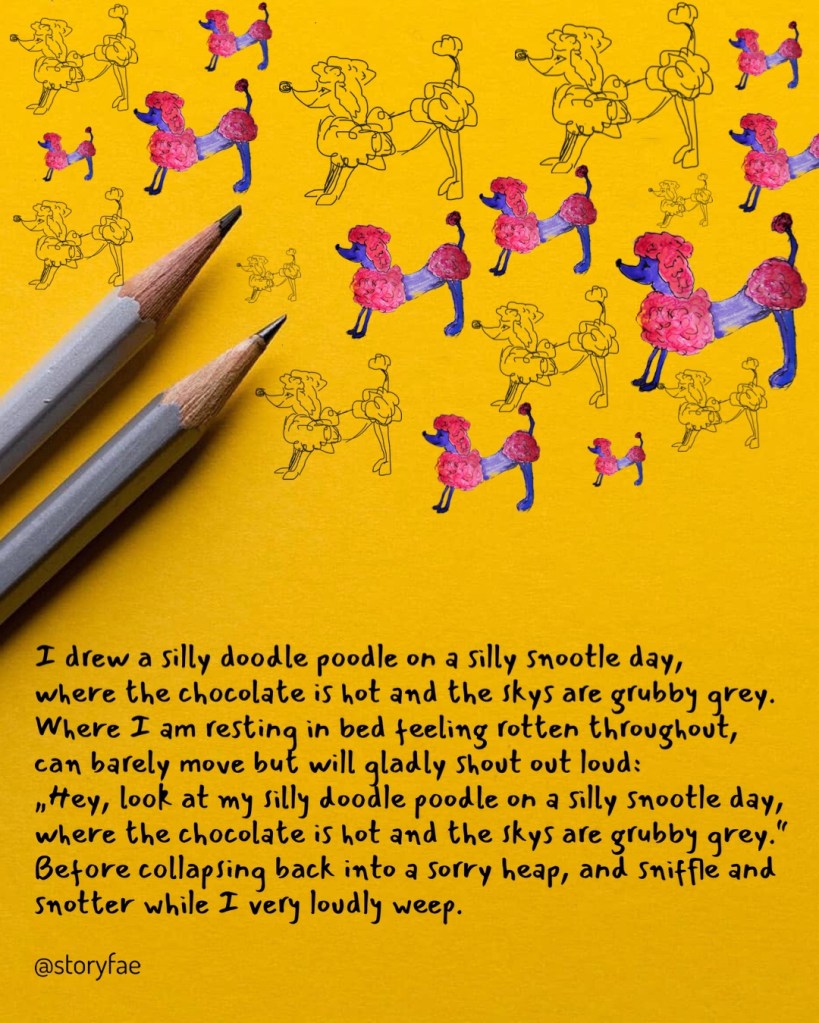 I drew a silly doodle poodle on a silly snootle day,
where the chocolate is hot and the skys are grubby grey.
Where I am resting in bed feeling rotten throughout,
can barely move but will gladly shout out loud:
„Hey, look at my silly doodle poodle on a silly snootle day,
where the chocolate is hot and the skys are grubby grey."
Before collapsing back into a sorry heap, and sniffle and
snotter while I very loudly weep.
@storyfae